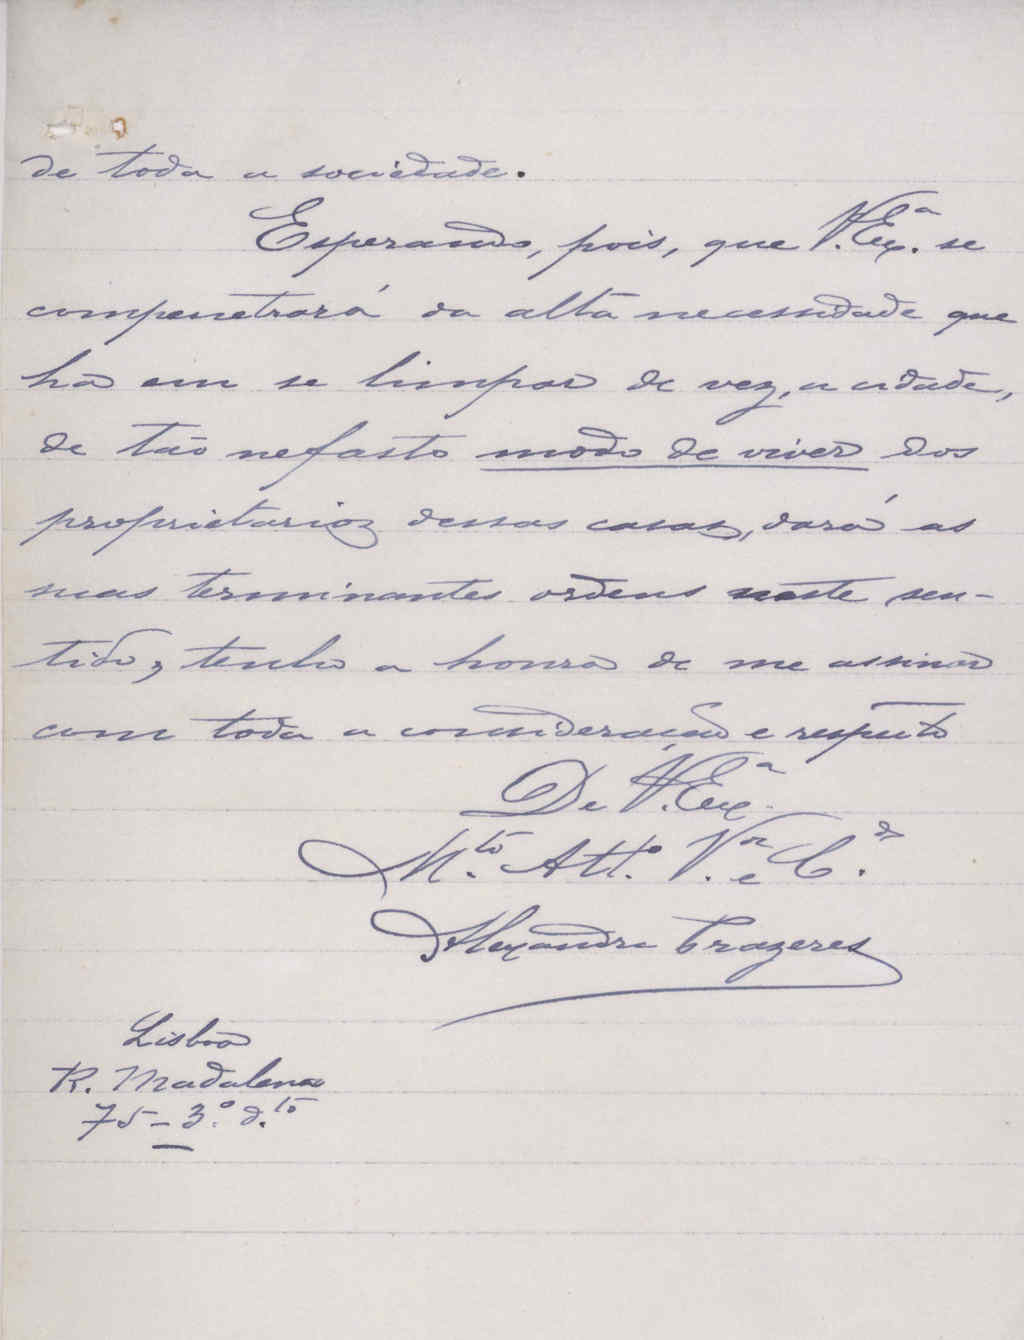 de toda a sociedade.
Esperando, pois, que V. Exª. se
compenetrará da alta necessidade que
ha em se limpar de vez, a cidade,
de tão nefasto modo de viver dos
proprietarios dessas casas, dará as
suas terminantes ordens neste sen-
tido, tenho a honra de me assinar
com toda a consideração e respeito
De V. Exª.
M.to Att.º V.or e C.º
Alexandre Prazeres
Lisboa
R. Madalena
75-3.º d.to